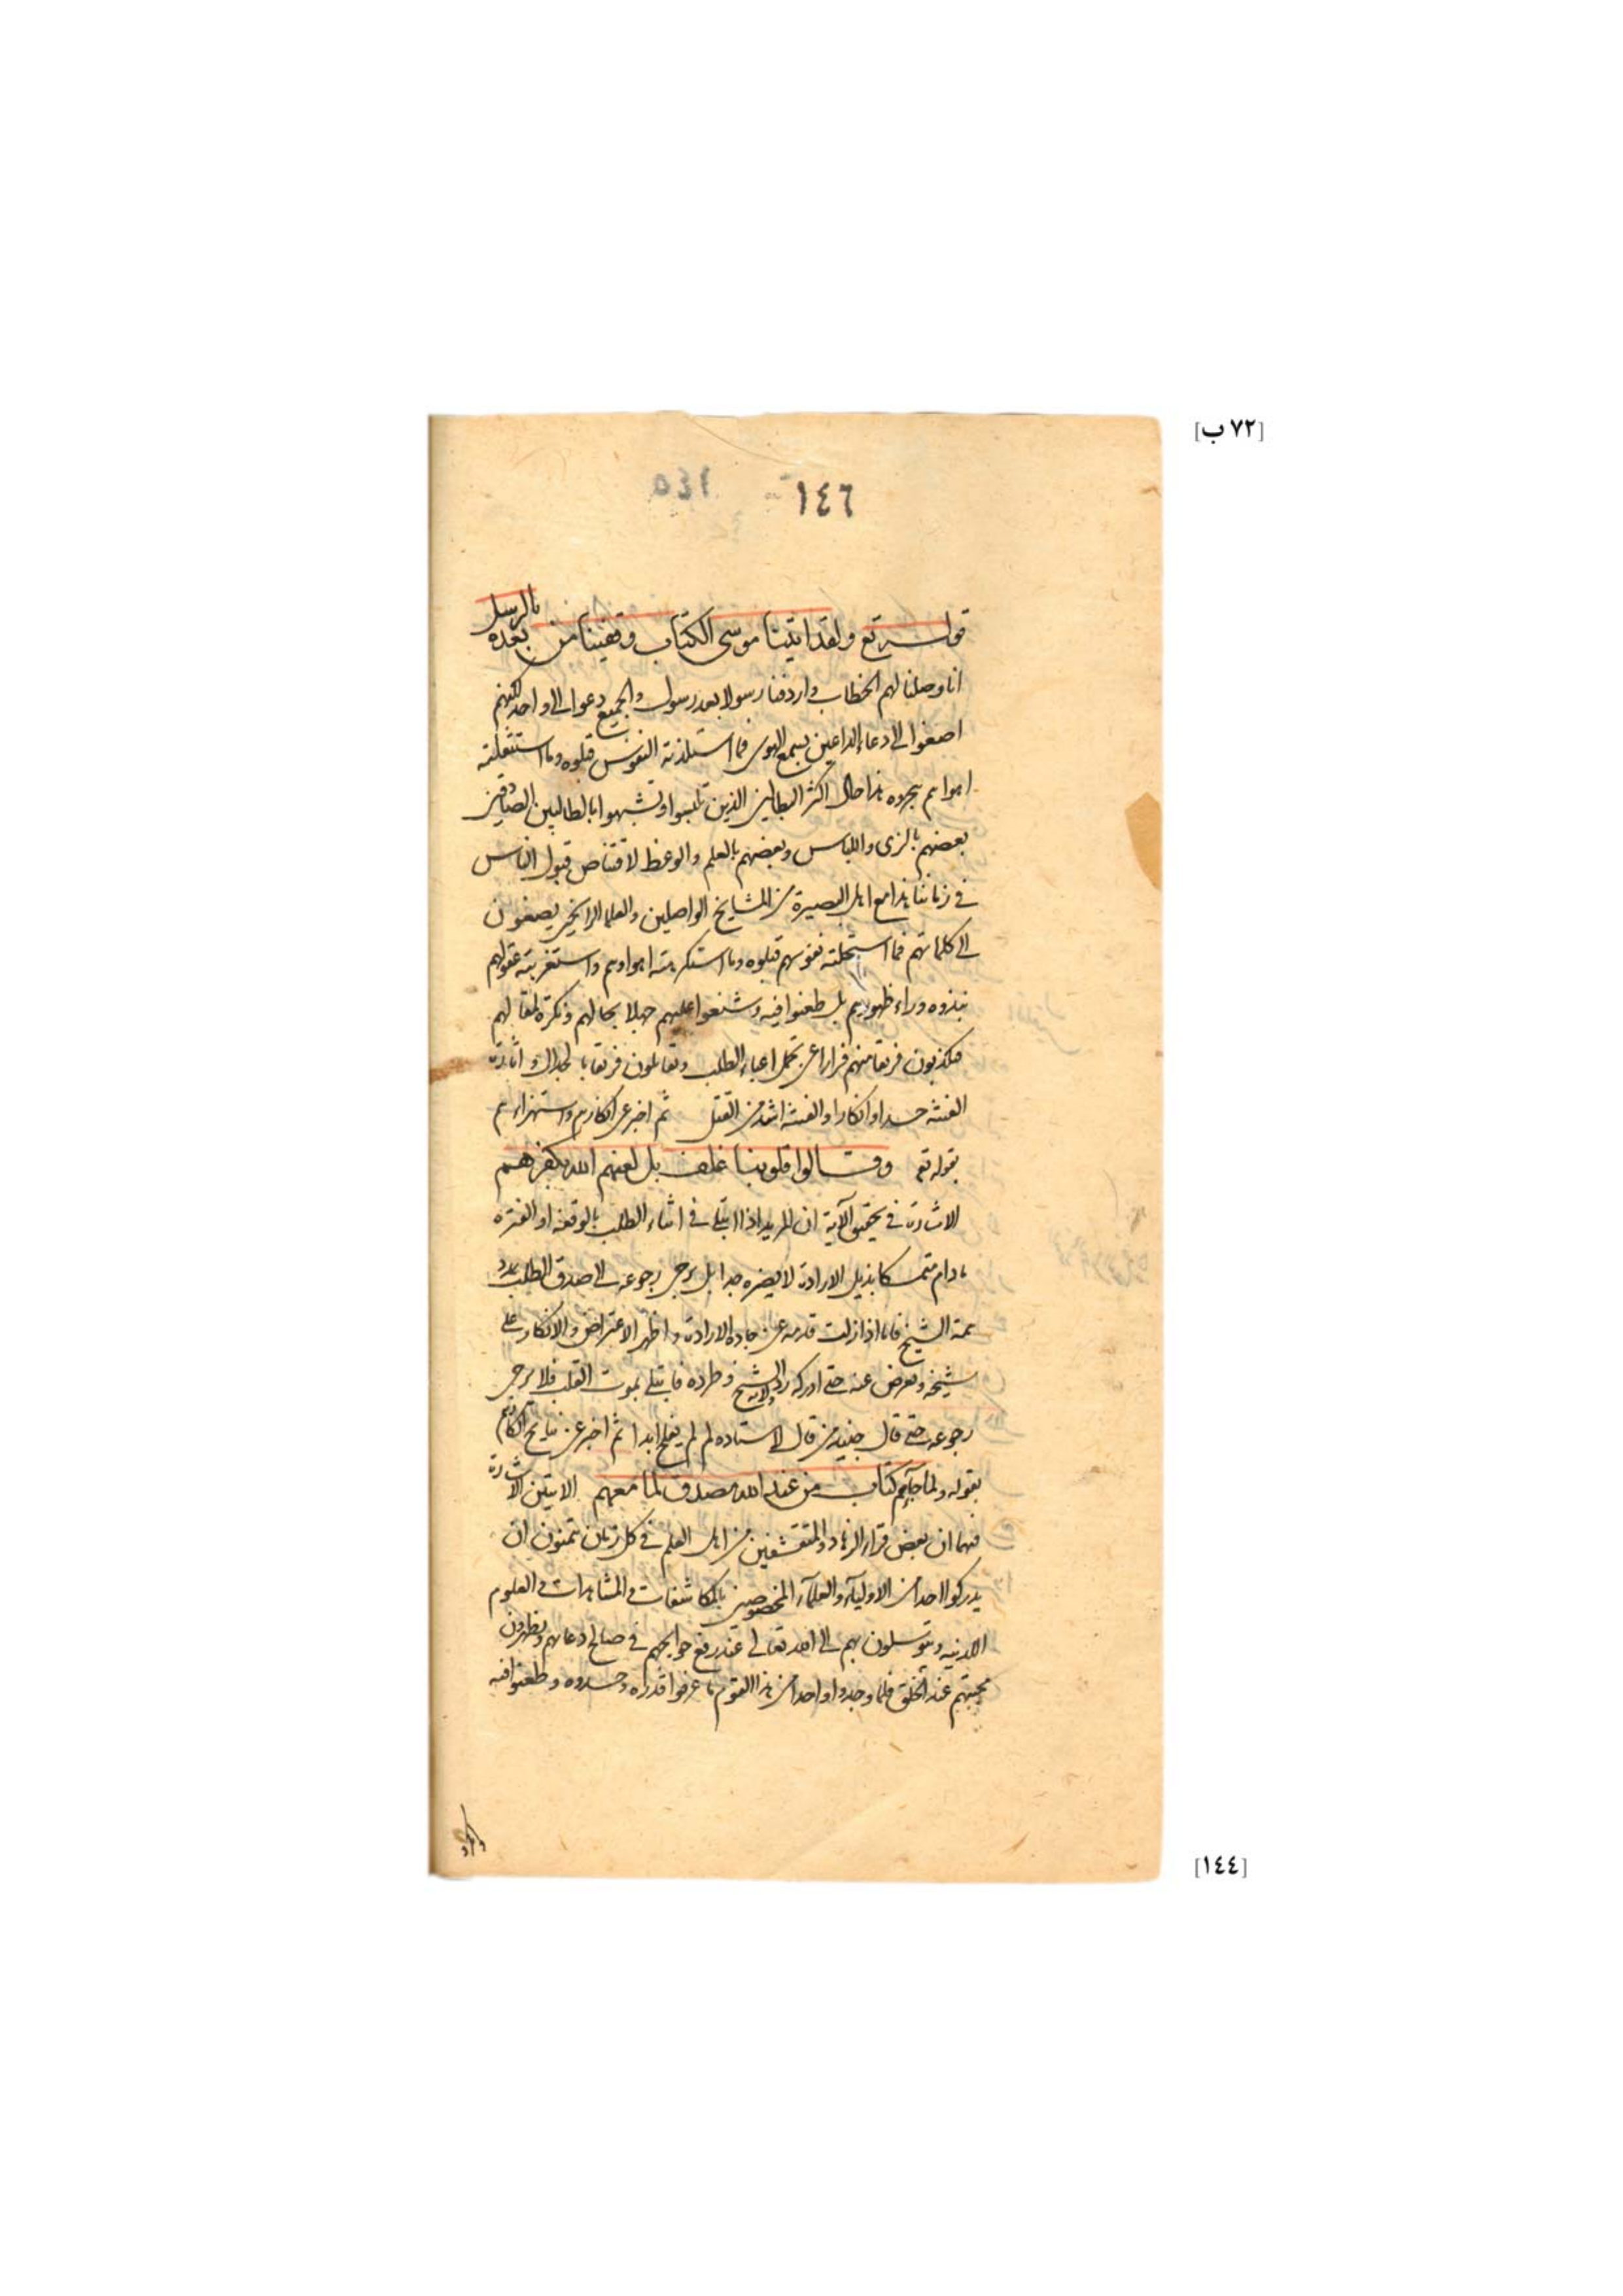 [٧٢ ب]
١٤٦
قوله تع ولقد اتينا موسى الكتاب وقفينا من بعده بالرسل
انا وصلنا لهم الخطاب واردفنا رسولا بعد رسول والجميع دعوا الى واحد لكنهم
اصغوا الى دعاء الداعين بسمع الهوى فما استلذته النفوس قبلوه وما استثقلته
اهواءهم هجروه هذا حال اكثر البطالين الذين تلبسوا وتشبهوا بالطالبين الصادقين
بعضهم بالزى واللباس وبعضهم بالعلم والوعظ لاقتناص قبول الناس
فى زماننا هذا مع اهل البصيرة من المشايخ الواصلين والعلما الراسخين يصغون
الى كلماتهم فما استحلته نفوسهم قبلوه وما استكرهته اهواوهم واستغربته عقولهم
نبذوه وراء ظهورهم بل طعنوا فيه وشنعوا عليهم جهلا بحالهم ونكرة لمقالهم
فيكذبون فريقا منهم فرارا عن تحمل اعباء الطلب وتقاتلون فريقا بالجدال واثارة
الفتنه حسدا وانكارا والفتنه اشد من القتل ثم اخبر عن انكارهم واستهزاءهم
بقوله تع وقالوا قلوبنا غلف بل لعنهم الله بكفرهم
الاشارة فى تحقيق الآية ان المريد اذا ابتلى فى اثناء الطلب بالوقفه او الفتره
مادام متمسكا بذيل الارادة لا يضره جدا بل يرجى رجوعه الى صدق الطلب بمدد
همة الشيخ فاما اذا زلت قدمه عن جاده الارادة واظهر الاعتراض والانكار على
شيخه وتعرض عنه حتى ادركه رد ولاية الشيخ وطرده فابتلى بموت القلب فلا يرجى
رجوعه حتى قال جنيد من قال لاستاده لم لم يفلح ابدا ثم اخبر عن نتايج انكارهم
بقوله ولما جآءهم كتاب من عند الله مصدق لما معهم الايتين الاشارة
فيهما ان بعض قراء الزهاد والمتقشفين من اهل العلم فى كل زمان يتمنون ان
يدركوا احدا من الاوليآء والعلمآء المخصوصين بالمكاشفات والمشاهدات والعلوم
اللدنيه ويتوسلون بهم الى الله تعالى عند رفع حوايجهم فى صالح دعاءهم ويظهرون
محبتهم عند الخلق فلما وجدوا واحدا من هذا القوم ما عرفوا قدره وحسدوه وطعنوا فيه
[١٤٤]